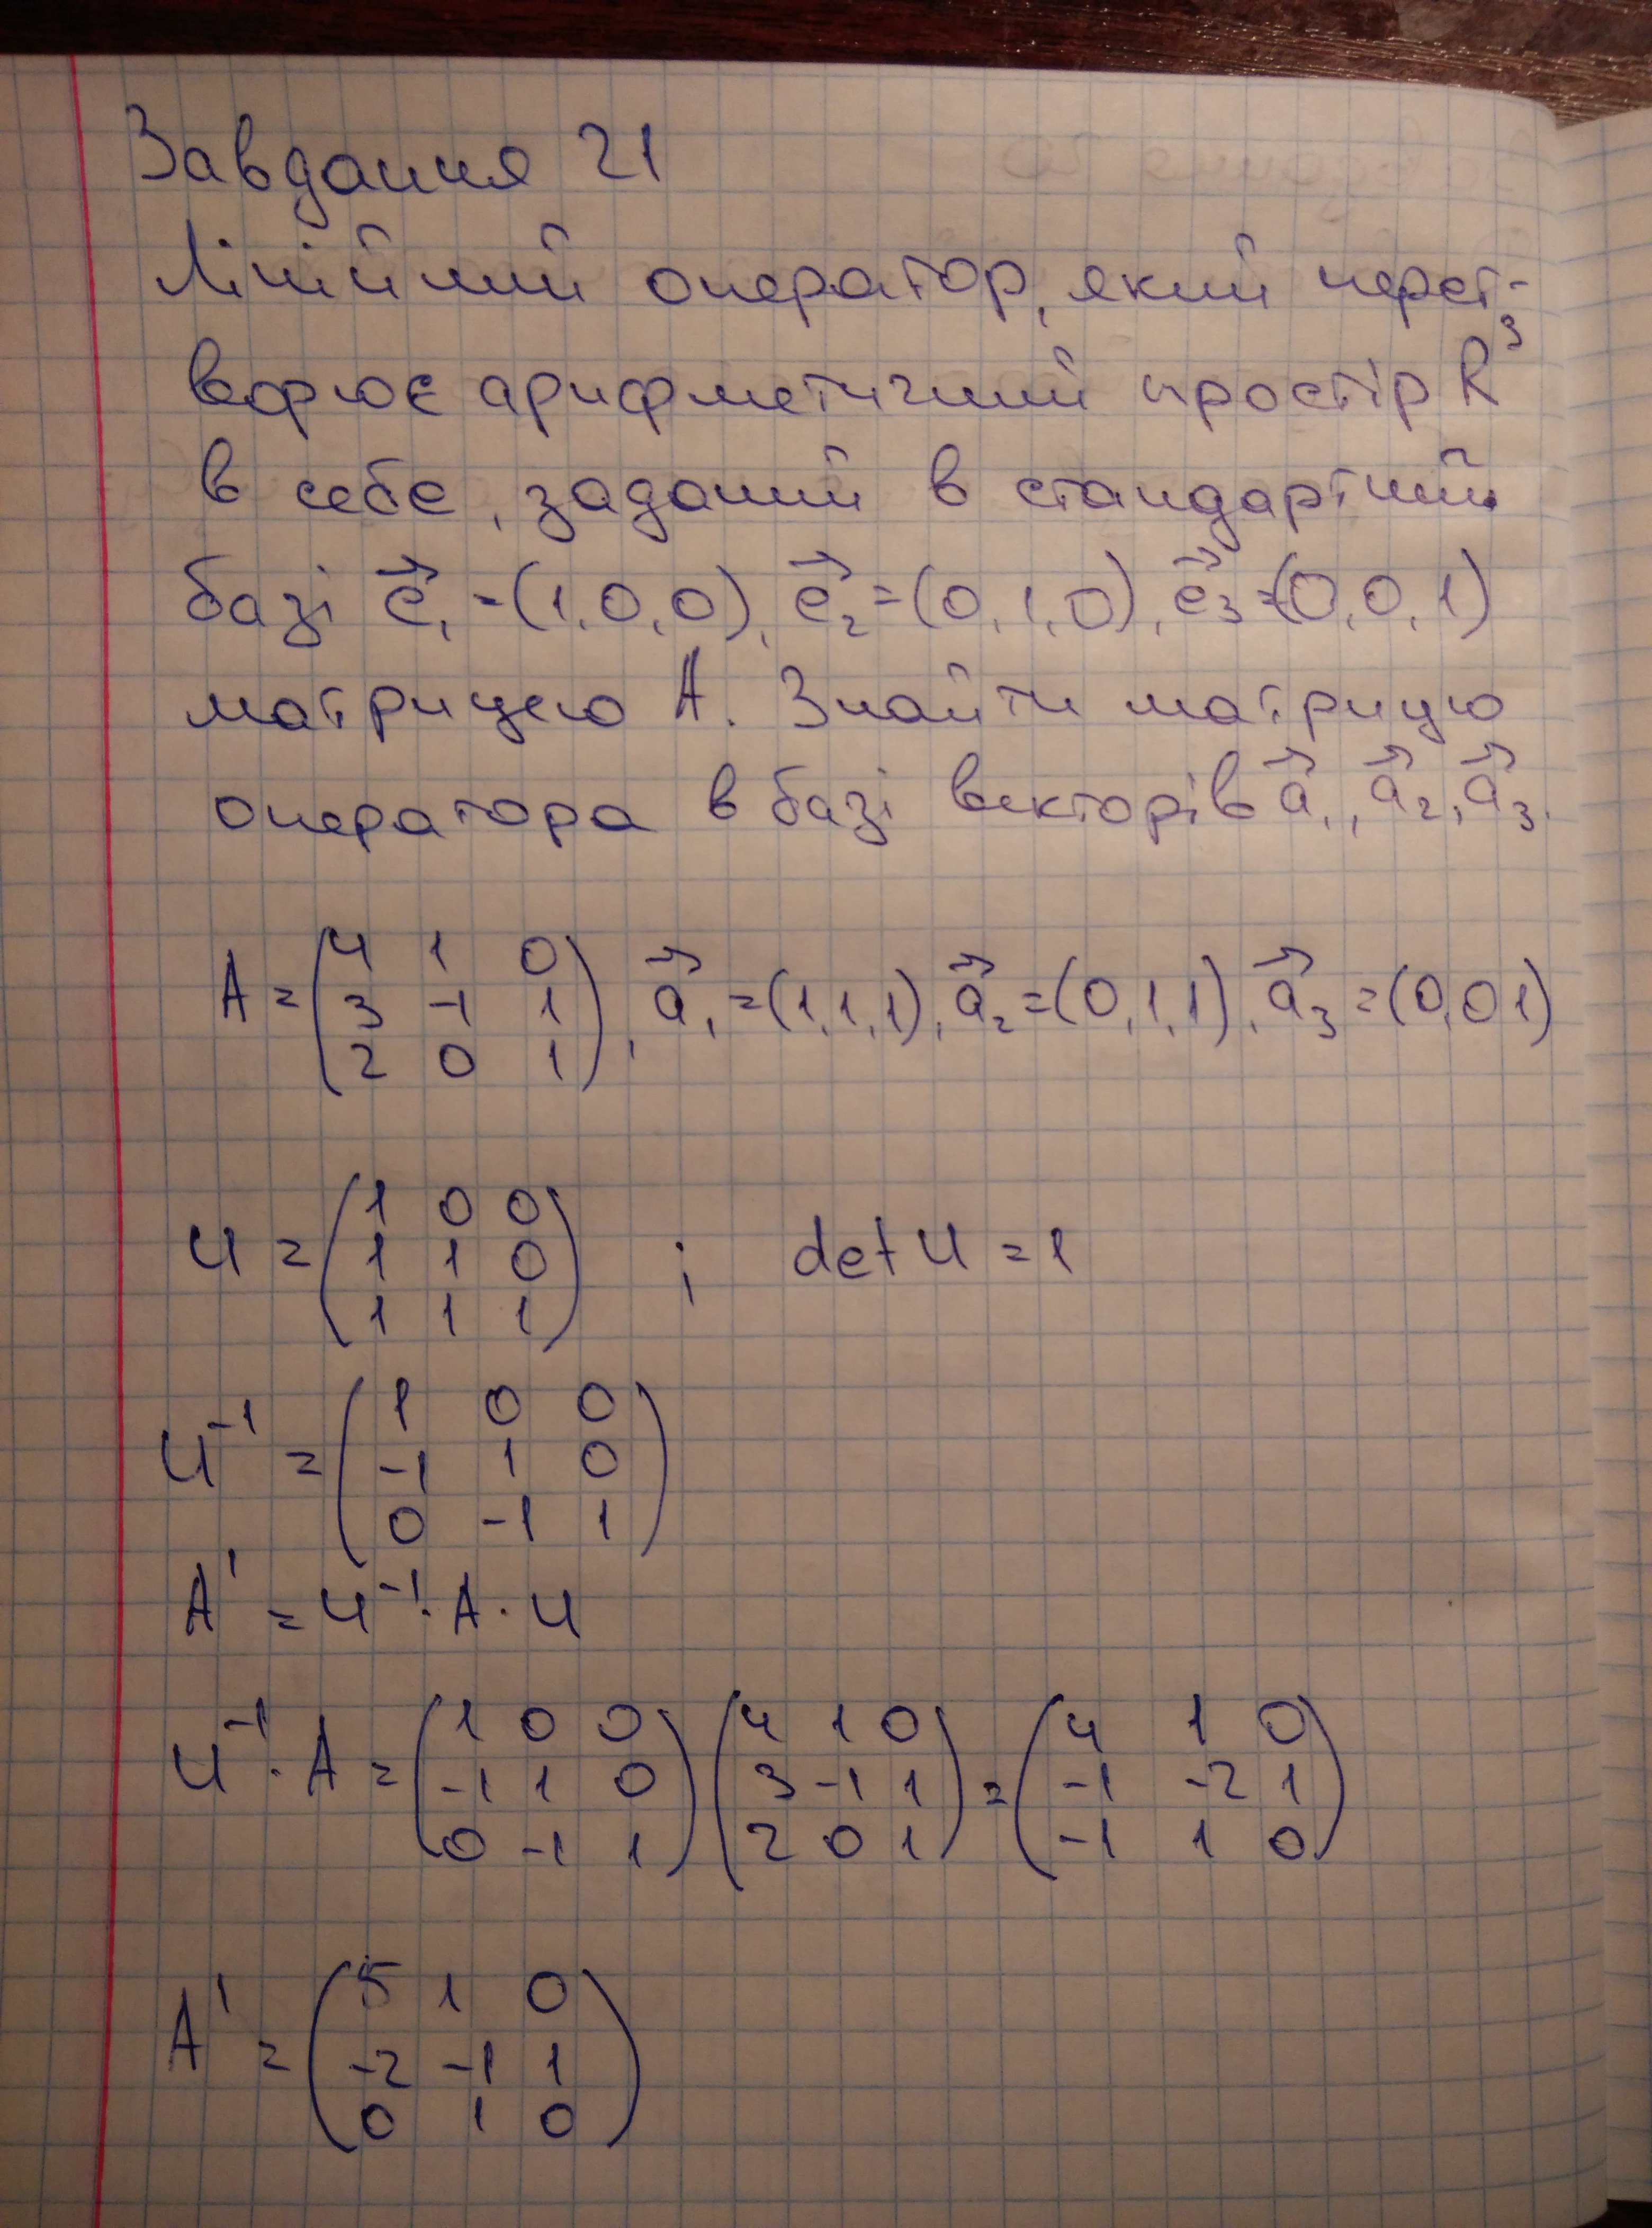 Завдання 21
Лінійний оператор, який перет-
ворює арифметичний простір R³
в себе, заданий в стандартній
базі e₁ = (1,0,0), e₂ = (0,1,0), e₃ = (0,0,1)
матрицею A. Знайти матрицю
оператора в базі векторів a₁, a₂, a₃.
A = (4 1 0
3 -1 1
2 0 1), a₁ = (1,1,1), a₂ = (0,1,1), a₃ = (0,0 1)
U = (1 0 0
1 1 0
1 1 1) ; det U = 1
U⁻¹ = (1 0 0
-1 1 0
0 -1 1)
A' = U⁻¹ · A · U
U⁻¹ · A = (1 0 0
-1 1 0
0 -1 1) (4 1 0
3 -1 1
2 0 1) = (4 1 0
-1 -2 1
-1 1 0)
A' = (5 1 0
-2 -1 1
0 1 0)